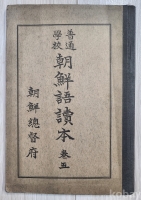 普通
學校
朝鮮語讀本 卷五
朝鮮總督府